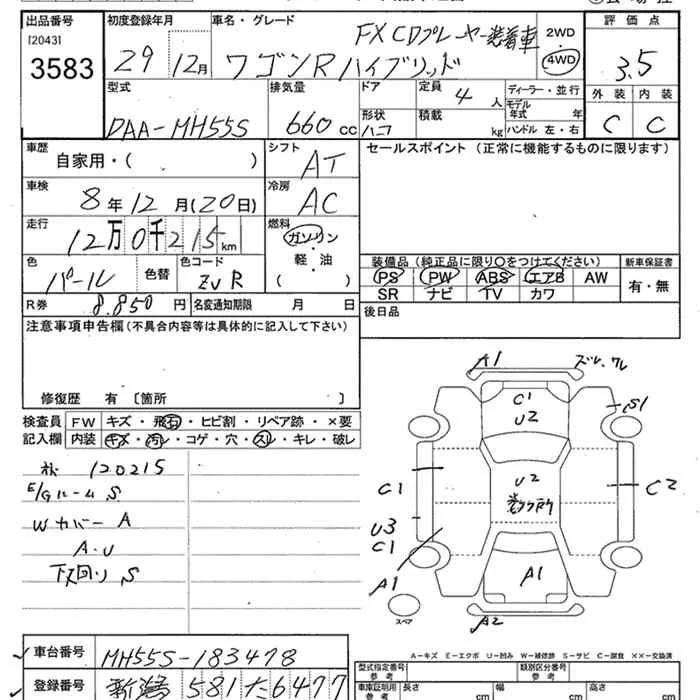 出品番号
[2043]
3583
初度登録年月
29 12月
車名・グレード
FX CDプレーヤー装着車
ワゴンR ハイブリッド
2WD
4WD
評価点
3.5
外装 内装
C C
型式
DAA-MH55S
排気量
660 cc
ドア
形状
ハコ
定員
4 人
積載
kg
ディーラー・並行
モデル年式 年
ハンドル 左・右
車歴
自家用・( )
シフト
AT
車検
8年12月(20日)
冷房
AC
走行
12万0千215km
燃料
ガソリン
・
軽・油
( )
色
パール
色替
色コード
ZVR
R券 8.850円
名変通知期限 月 日
セールスポイント(正常に機能するものに限ります)
装備品(純正品に限り○をつけてください)
PS PW ABS エアB AW
SR ナビ TV カワ
新車保証書
有・無
後日品
注意事項申告欄(不具合内容等は具体的に記入して下さい)
修復歴 有 〔箇所 〕
検査員記入欄
FW キズ・飛石・ヒビ割・リペア跡・×要
内装 キズ・汚・コゲ・穴・スレ・キレ・破レ
120215
E/Gルーム S
Wカバー A
A・U
下回り S
A1
ズレ、ワレ
C1
U2
S1
C1
U2
C2
U3
C1
A1
A1
A2
スペア
A-キズ E-エクボ U-凹み W-補修跡 S-サビ C-腐食 ××-交換済
車台番号 MH55S-183478
登録番号 新潟 581 た 6477
型式指定番号
参考
類別区分番号
参考
車庫証明用
参考
長さ cm
幅 cm
高さ cm